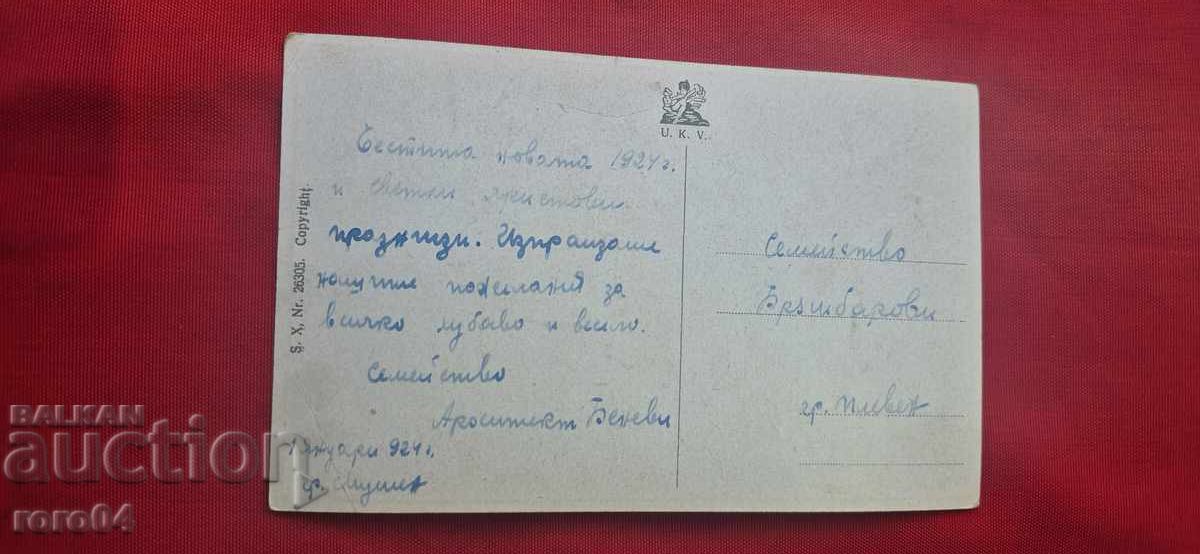 U. K. V.
S. X, Nr. 26305. Copyright.
Честита новата 1924 г.
и светли Христови
празници. Изпращаме
най пожелания за
всичко хубаво и весело.
Семейство
Архитект Беневи
Януари 924 г.
гр.
Семейство
Бръшбарови
гр. Плевен
BALKAN
auction
roro04